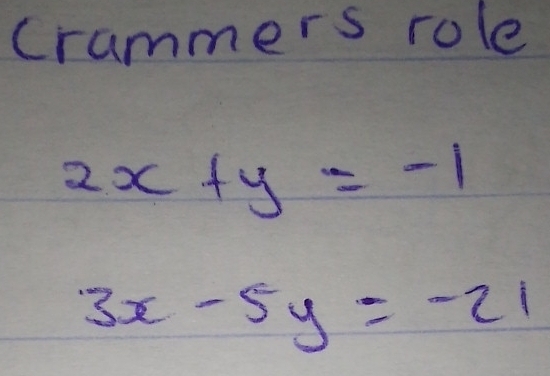 Crammers role
2x + y = -1
3x - 5y = -21